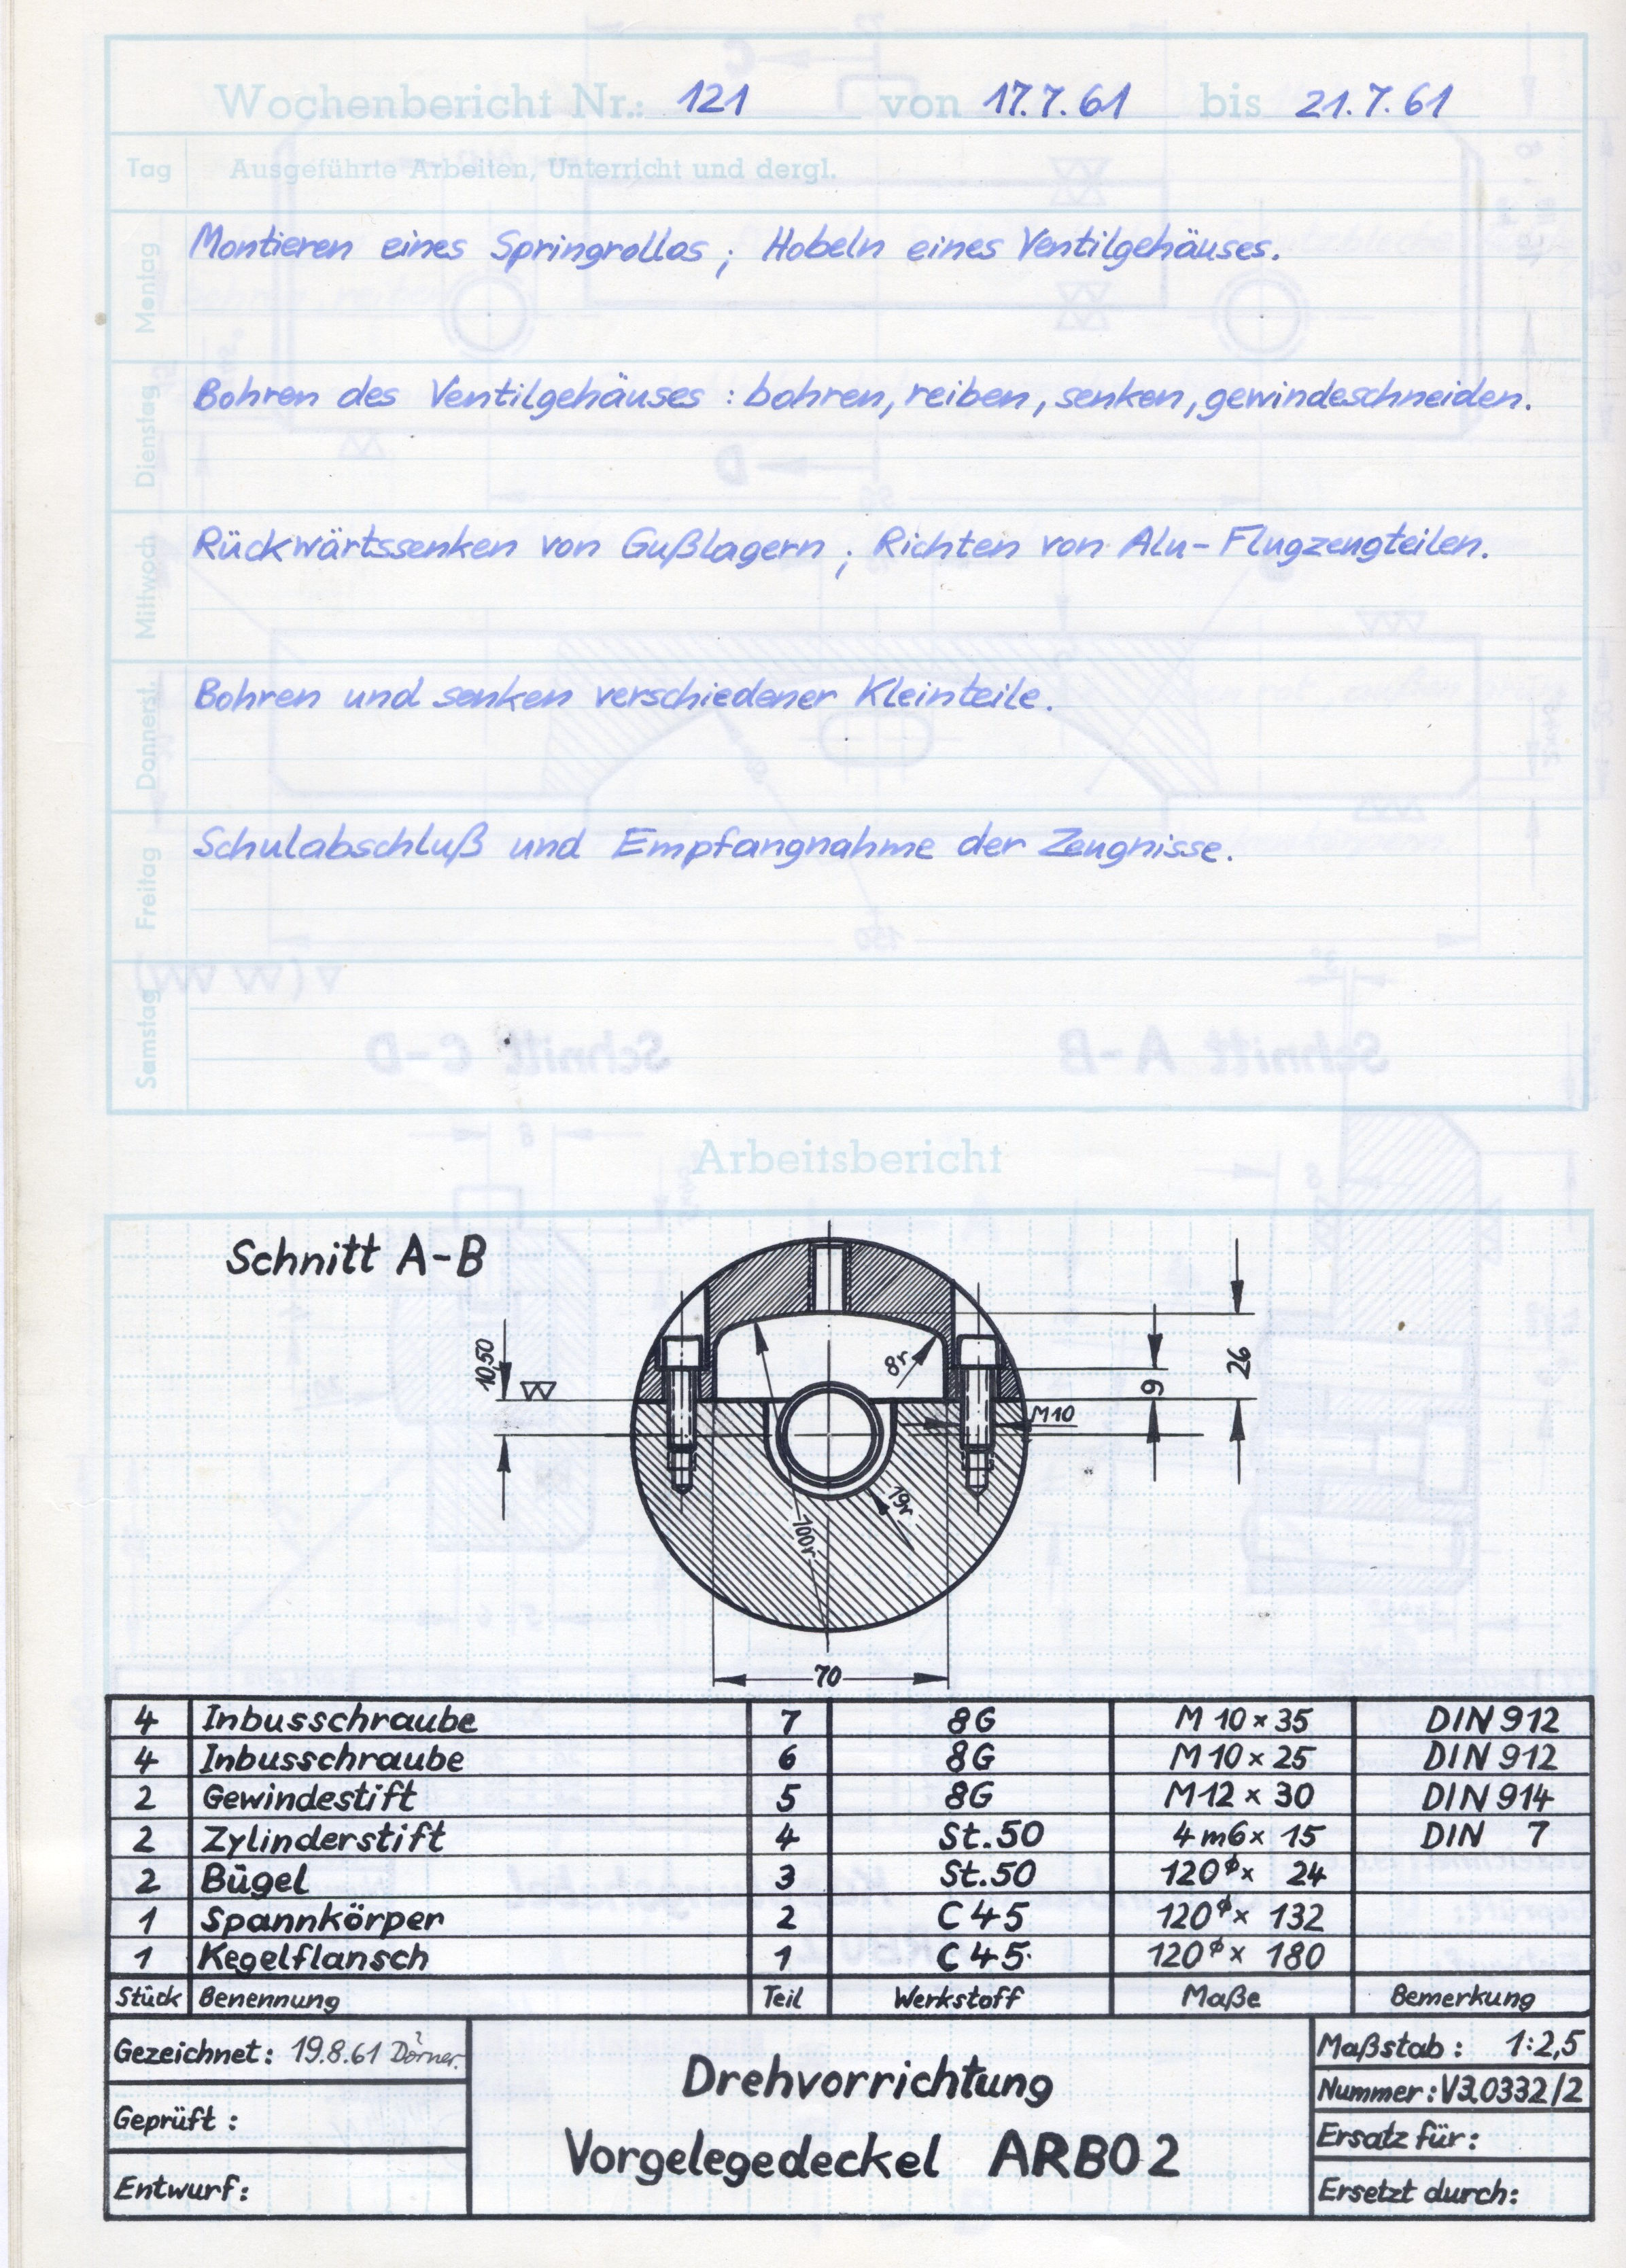 Wochenbericht Nr.: 121 von 17.7.61 bis 21.7.61
Tag Ausgeführte Arbeiten, Unterricht und dergl.
Montag Montieren eines Springrollos; Hobeln eines Ventilgehäuses.
Dienstag Bohren des Ventilgehäuses : bohren, reiben, senken, gewindeschneiden.
Mittwoch Rückwärtssenken von Gußlagern ; Richten von Alu-Flugzeugteilen.
Donnerst. Bohren und senken verschiedener Kleinteile.
Freitag Schulabschluß und Empfangnahme der Zeugnisse.
Samstag
Arbeitsbericht
Schnitt A-B
10,50
8r
9
26
M10
19r
100r
70
4 Inbusschraube 7 8G M 10 x 35 DIN 912
4 Inbusschraube 6 8G M 10 x 25 DIN 912
2 Gewindestift 5 8G M12 x 30 DIN 914
2 Zylinderstift 4 St.50 4 m6 x 15 DIN 7
2 Bügel 3 St.50 120⌀ x 24
1 Spannkörper 2 C 45 120⌀ x 132
1 Kegelflansch 1 C 45 120⌀ x 180
Stück Benennung Teil Werkstoff Maße Bemerkung
Gezeichnet: 19.8.61 Dörner
Geprüft :
Entwurf:
Drehvorrichtung
Vorgelegedeckel ARBO 2
Maßstab : 1:2,5
Nummer: V3.0332/2
Ersatz für:
Ersetzt durch: